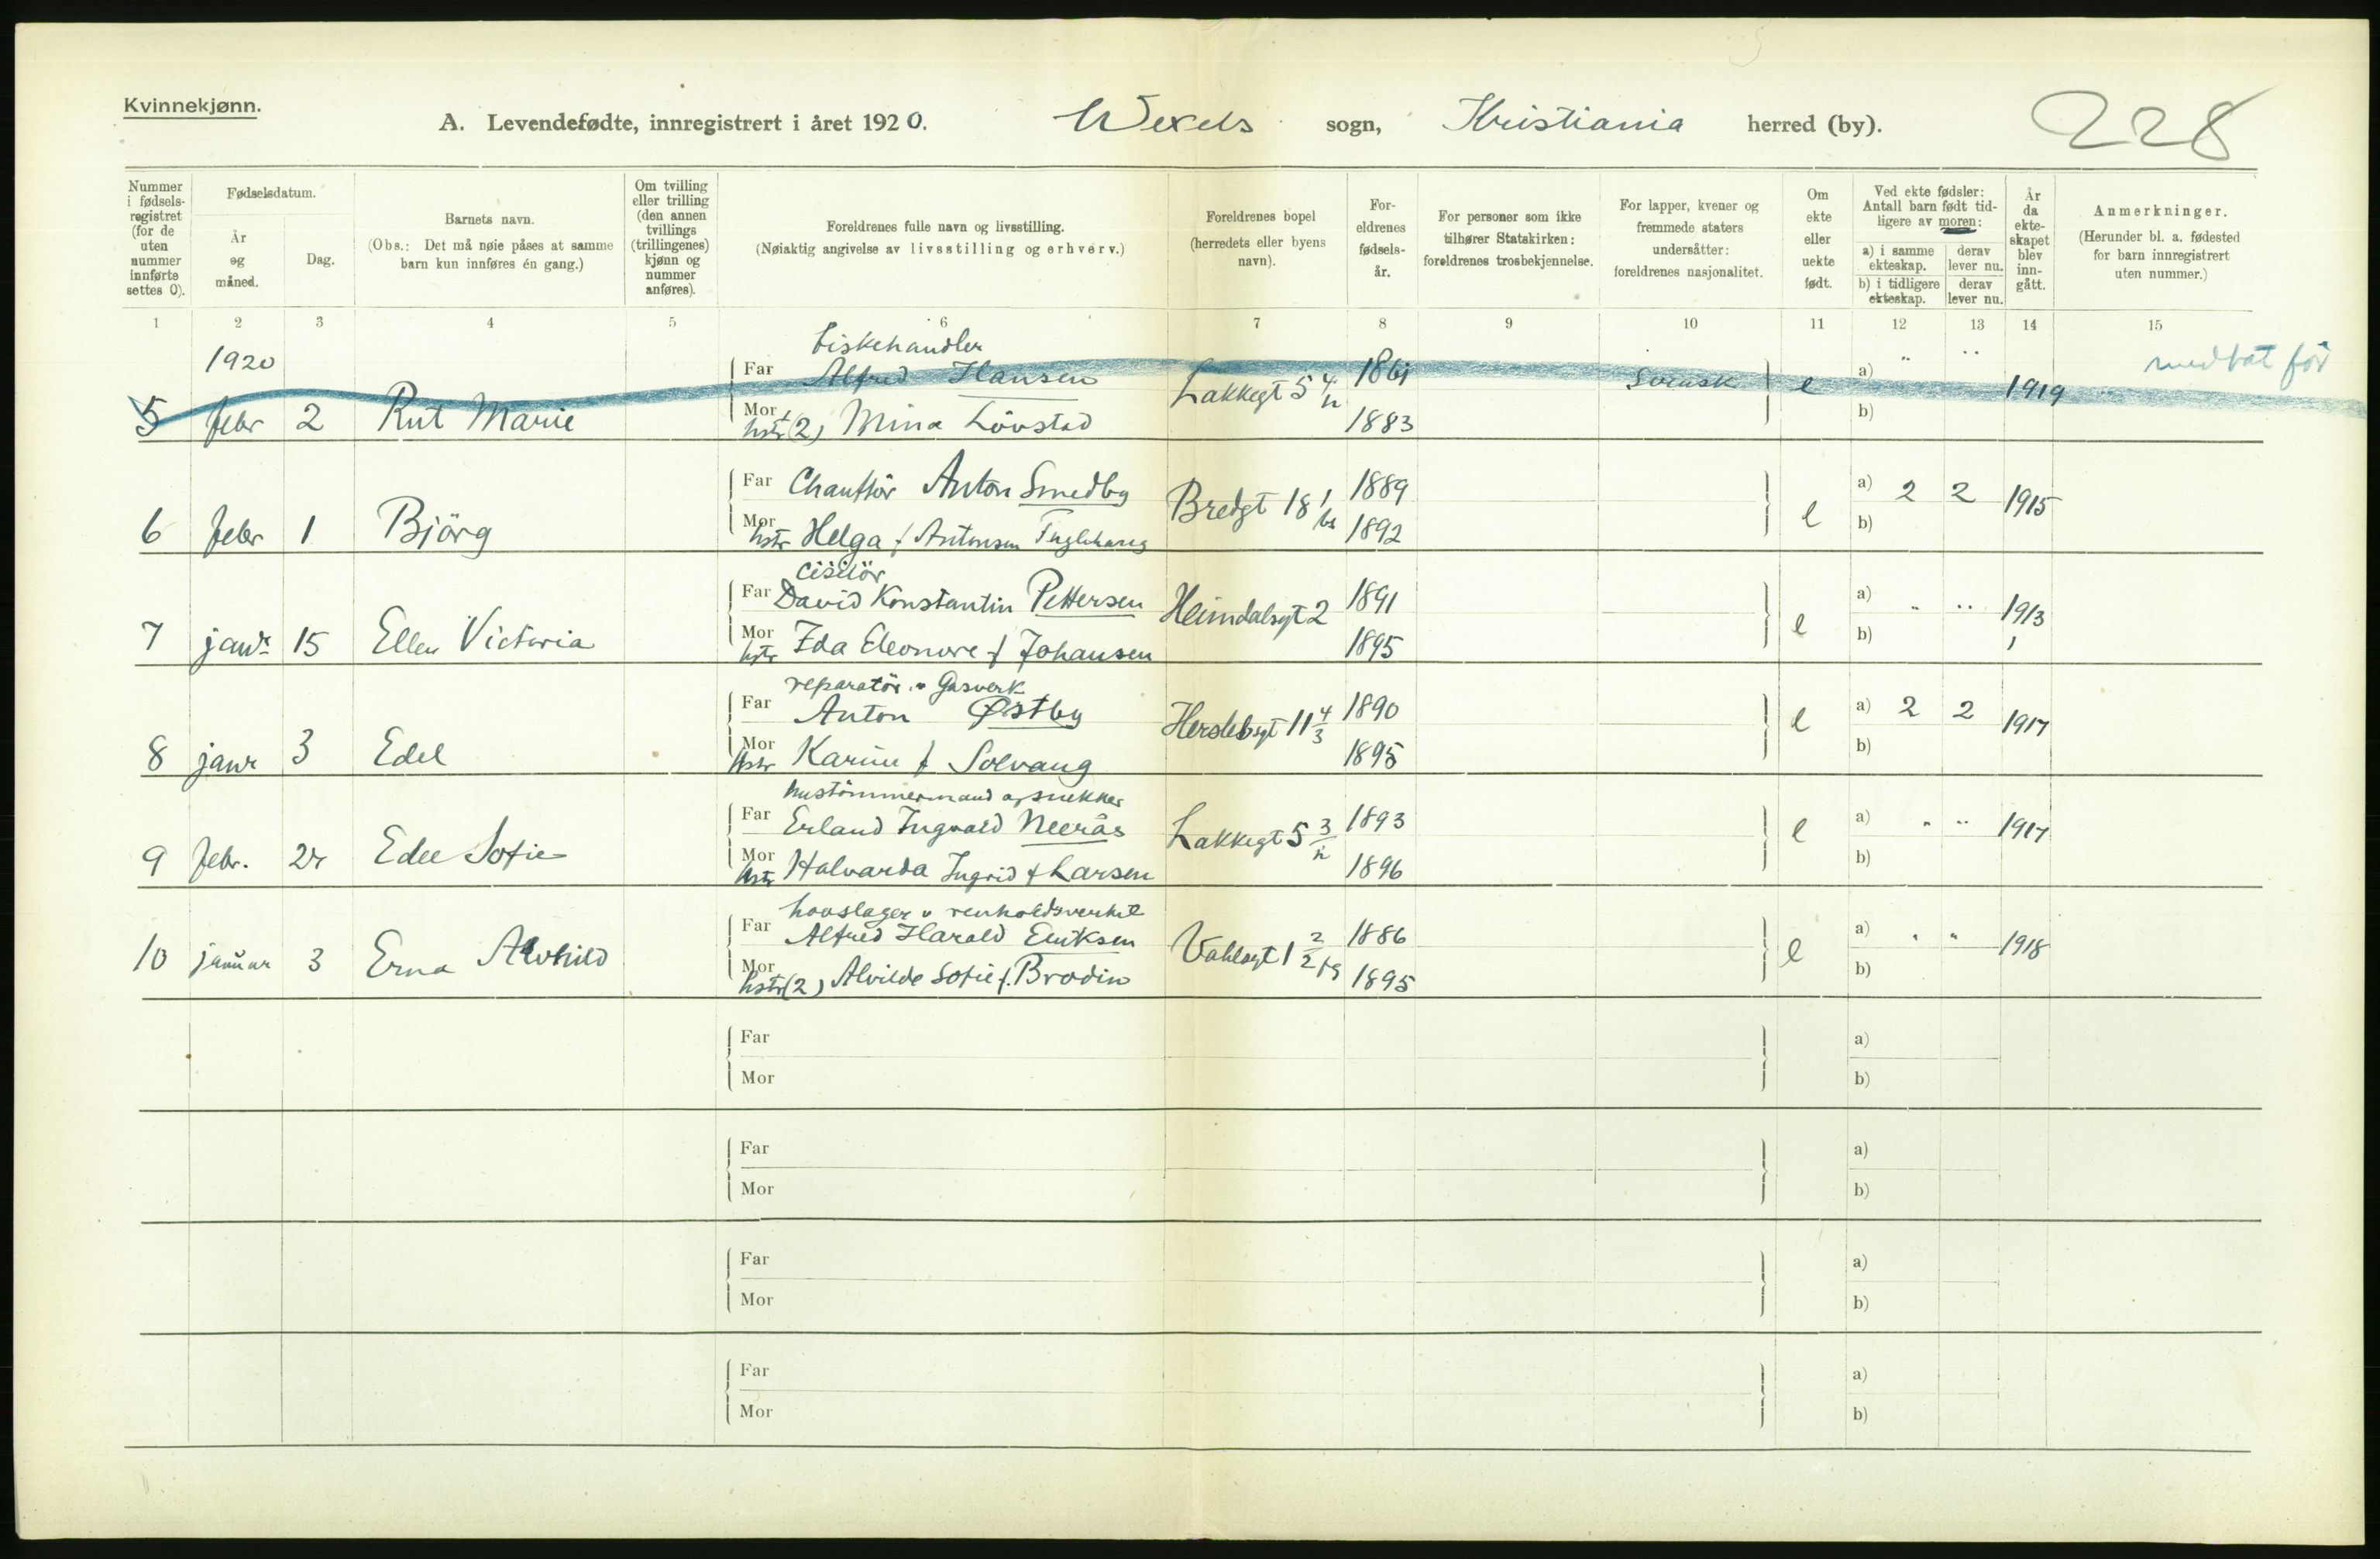 Kvinnekjønn.
A. Levendefødte, innregistrert i året 1920. Wexels sogn, Kristiania herred (by). 228
Nummer i fødsels-registret (for de uten nummer innførte settes 0).
Fødselsdatum.
År og måned.
Dag.
Barnets navn.
(Obs.: Det må nøie påses at samme barn kun innføres én gang.)
Om tvilling eller trilling (den annen tvillings (trillingenes) kjønn og nummer anføres).
Foreldrenes fulle navn og livsstilling.
(Nøiaktig angivelse av livsstilling og erhverv.)
Foreldrenes bopel (herredets eller byens navn).
For-eldrenes fødsels-år.
For personer som ikke tilhører Statskirken: foreldrenes trosbekjennelse.
For lapper, kvener og fremmede staters undersåtter: foreldrenes nasjonalitet.
Om ekte eller uekte født.
Ved ekte fødsler: Antall barn født tid-ligere av moren:
a) i samme ekteskap. derav lever nu.
b) i tidligere ekteskap. derav lever nu.
År da ekte-skapet blev inn-gått.
Anmerkninger.
(Herunder bl. a. fødested for barn innregistrert uten nummer.)
1 2 3 4 5 6 7 8 9 10 11 12 13 14 15
1920 fiskehandler
Far Alfred Hansen 1861 svensk e a) " " 1919 medtat før
5 febr 2 Rut Marie Mor hstr (2) Mina Lövstad Lakkegt 5 4/n 1883 b)
Far Chaufför Anton Smedby 1889 a) 2 2 1915
6 febr 1 Bjørg Mor hstr Helga f Antonsen Bredgt 18 1892 e b)
ciselör
Far David Konstantin Pettersen Heimdalsgt 2 1891 a) " " 1913
7 janr 15 Ellen Victoria Mor hstr Ida Eleonore f Johansen 1895 e b)
reparatör v Gasverk
Far Anton Østby Herslebsgt 11 4/3 1890 e a) 2 2 1917
8 janr 3 Edel Mor hstr Karin f Solvang 1895 b)
hustömmermand og snekker
Far Erland Ingvald Neerås Lakkegt 5 3/n 1893 e a) " " 1917
9 febr. Sofie Mor hstr Halvarda Ingrid f Larsen 1896 b)
hovslager v renholdsverket
Far Alfred Harald Eriksen Vahlsgt 1 2/2 1886 a) " " 1918
10 januar 3 Erna Alvhild Mor hstr (2) Alvilde Sofie f. Brodin 1895 e b)
Far a)
Mor b)
Far a)
Mor b)
Far a)
Mor b)
Far a)
Mor b)